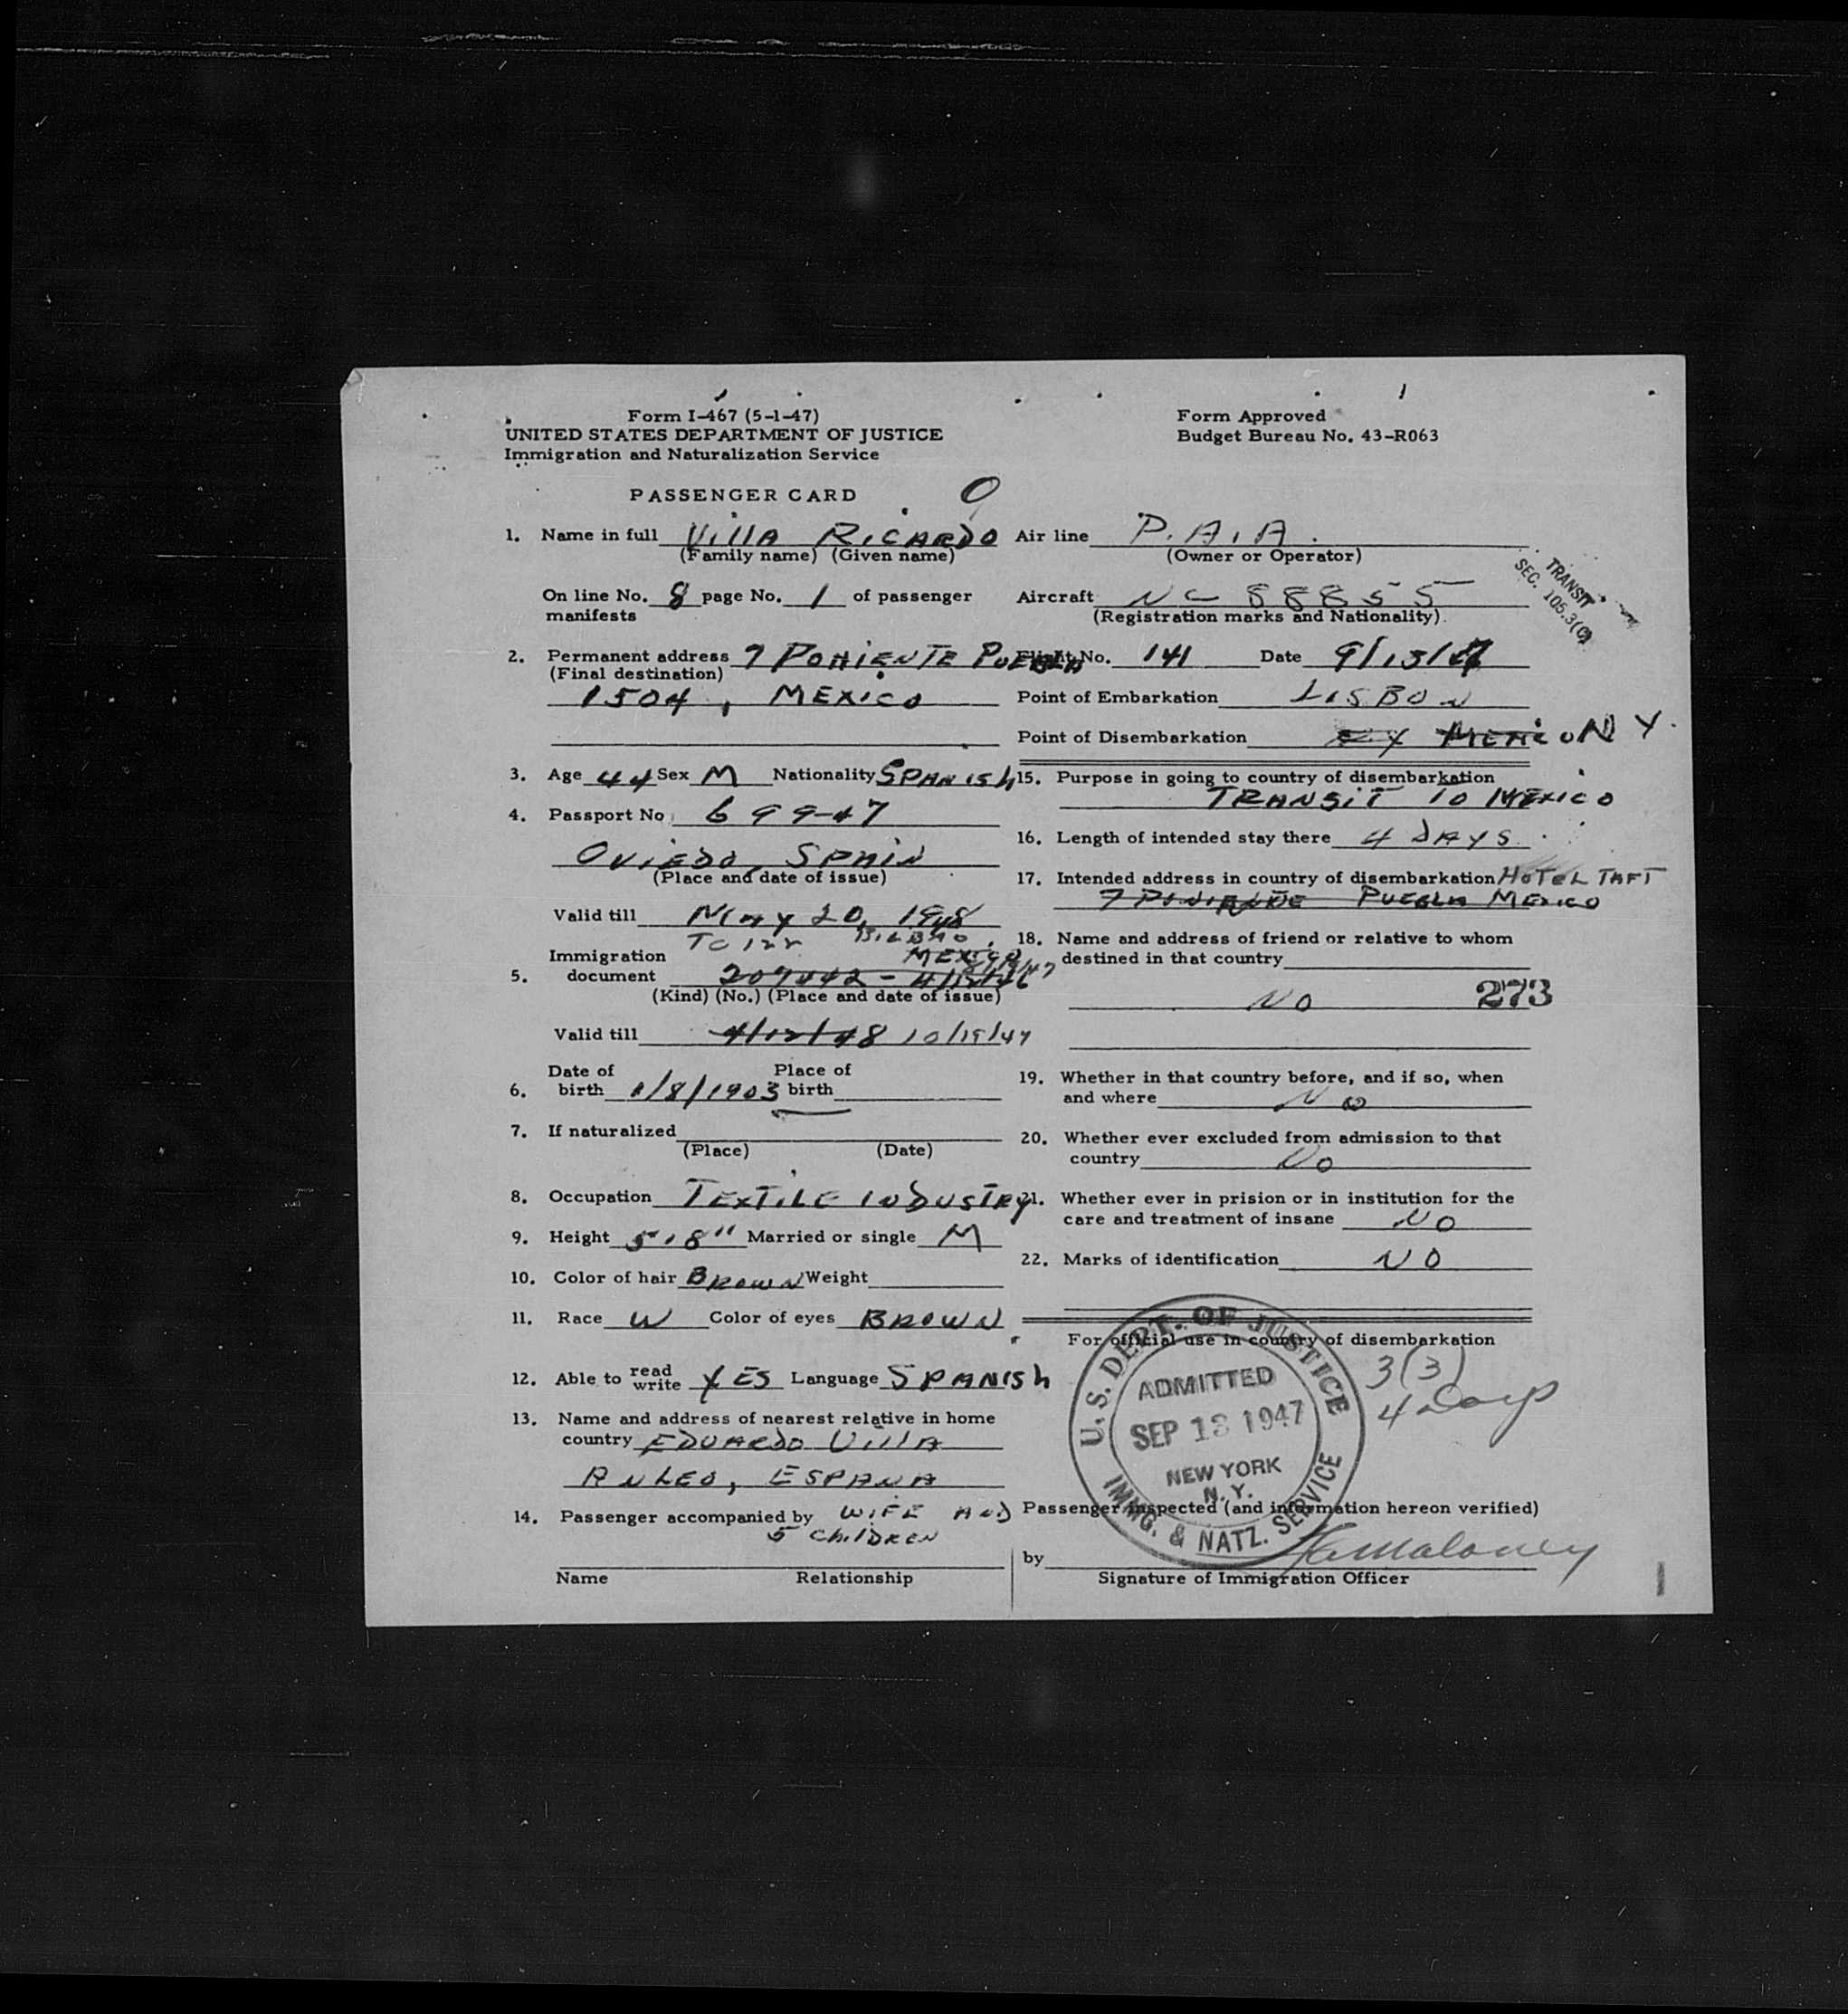 Form I-467 (5-1-47)
UNITED STATES DEPARTMENT OF JUSTICE
Immigration and Naturalization Service
Form Approved
Budget Bureau No. 43-R063
PASSENGER CARD
1. Name in full Villa Ricardo
(Family name) (Given name)
On line No. 8 page No. 1 of passenger
manifests
2. Permanent address 7 Poniente Puebla
(Final destination)
1504, Mexico
3. Age 44 Sex M Nationality Spanish
4. Passport No. 699-47
Oviedo, Spain
(Place and date of issue)
Valid till May 20, 1948
TC 122 Bilbao, Mexico
Immigration
5. document 207442 -
(Kind) (No.) (Place and date of issue)
Valid till 4/12/48 10/19/47
Date of Place of
6. birth 1/8/1903 birth
7. If naturalized
(Place) (Date)
8. Occupation Textile Industry
9. Height 5'8" Married or single M
10. Color of hair Brown Weight
11. Race W Color of eyes Brown
12. Able to read write Yes Language Spanish
13. Name and address of nearest relative in home
country Eduardo Villa
España
14. Passenger accompanied by Wife and
5 children
Name Relationship
Air line P.A.A.
(Owner or Operator)
Aircraft NC 88855
(Registration marks and Nationality)
TRANSIT
SEC. 105.3(C)
Flight No. 141 Date 9/13/47
Point of Embarkation Lisbon
Point of Disembarkation Mexico N Y.
15. Purpose in going to country of disembarkation
Transit to Mexico
16. Length of intended stay there 4 days
17. Intended address in country of disembarkation Hotel Taft
7 Poniente Puebla Mexico
18. Name and address of friend or relative to whom
destined in that country
No 273
19. Whether in that country before, and if so, when
and where No
20. Whether ever excluded from admission to that
country No
21. Whether ever in prision or in institution for the
care and treatment of insane No
22. Marks of identification No
For official use in country of disembarkation
U.S. DEPT. OF JUSTICE
ADMITTED
SEP 13 1947
NEW YORK
N.Y.
IMMG. & NATZ. SERVICE
3(3)
4 Days
Passenger inspected (and information hereon verified)
by Maloney
Signature of Immigration Officer